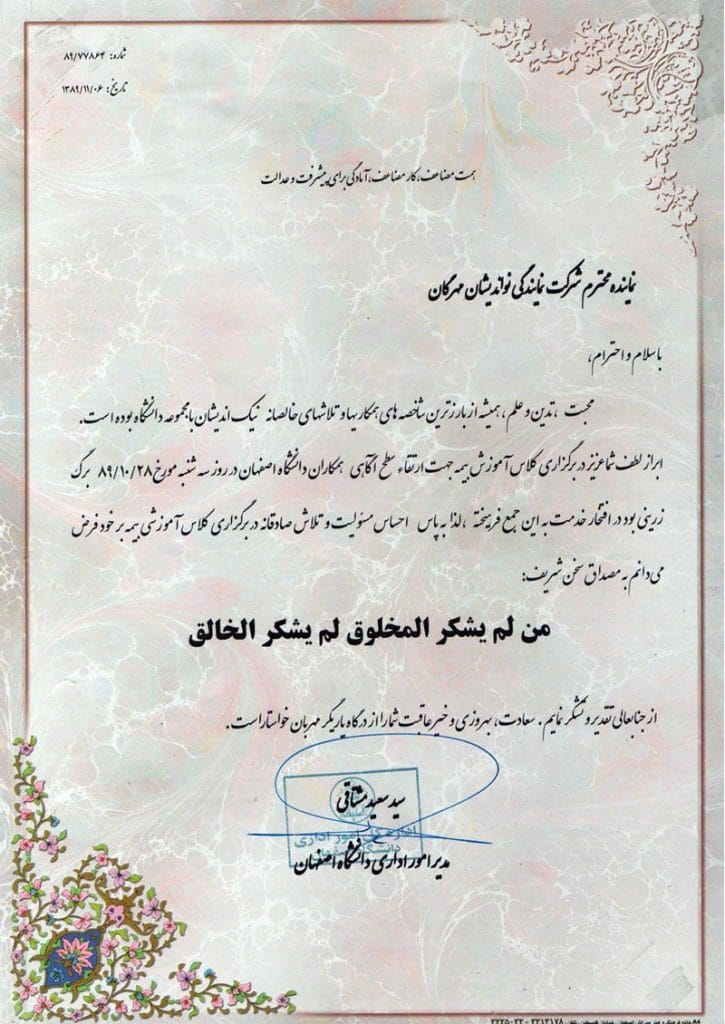 شماره: ۸۹/۷۷۸۶۴
تاریخ: ۱۳۸۹/۱۱/۰۶
همت مضاعف، کار مضاعف، آمادگی برای پیشرفت و عدالت
نماینده محترم شرکت نمایندگی نواندیشان مهرگان
با سلام و احترام،
محبت ، تدین و علم ، همیشه از بارزترین شاخصه های همکاریها و تلاشهای خالصانه نیک اندیشان با مجموعه دانشگاه بوده است.
ابراز لطف شما عزیز در برگزاری کلاس آموزش بیمه جهت ارتقاء سطح آگاهی همکاران دانشگاه اصفهان در روز سه شنبه مورخ ۸۹/۱۰/۲۸ برگ
زرینی بود در افتخار خدمت به این جمع فرهیخته ، لذا به پاس احساس مسئولیت و تلاش صادقانه در برگزاری کلاس آموزشی بیمه بر خود فرض
می دانم به مصداق سخن شریف:
من لم یشکر المخلوق لم یشکر الخالق
از جنابعالی تقدیر و تشکر نمایم. سعادت، بهروزی و خیر عاقبت شما را از درگاه یاریگر مهربان خواستار است.
سید سعید مشتاقی
اداره کل امور اداری
دانشگاه اصفهان
مدیر امور اداری دانشگاه اصفهان